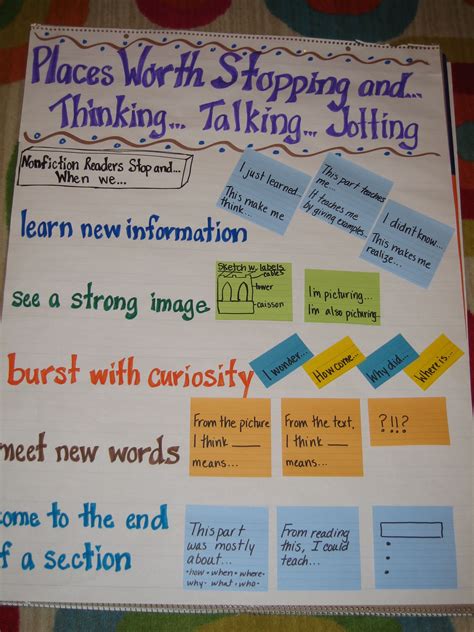 Places Worth Stopping and...
Thinking... Talking... Jotting
Nonfiction Readers Stop and...
When we...
learn new information
I just learned...
This make me
think...
This part teaches
me...
It teaches me
by giving examples...
I didn't know...
This makes me
realize...
see a strong image
Sketch w/ labels
cable
tower
caisson
I'm picturing...
I'm also picturing...
burst with curiosity
I wonder...
How come...
Why did...
Where is...
meet new words
From the picture
I think ____
means...
From the text,
I think ____
means...
?!!?
come to the end
of a section
This part
was mostly
about...
•how •when •where•
why •what •who•
From reading
this, I could
teach...